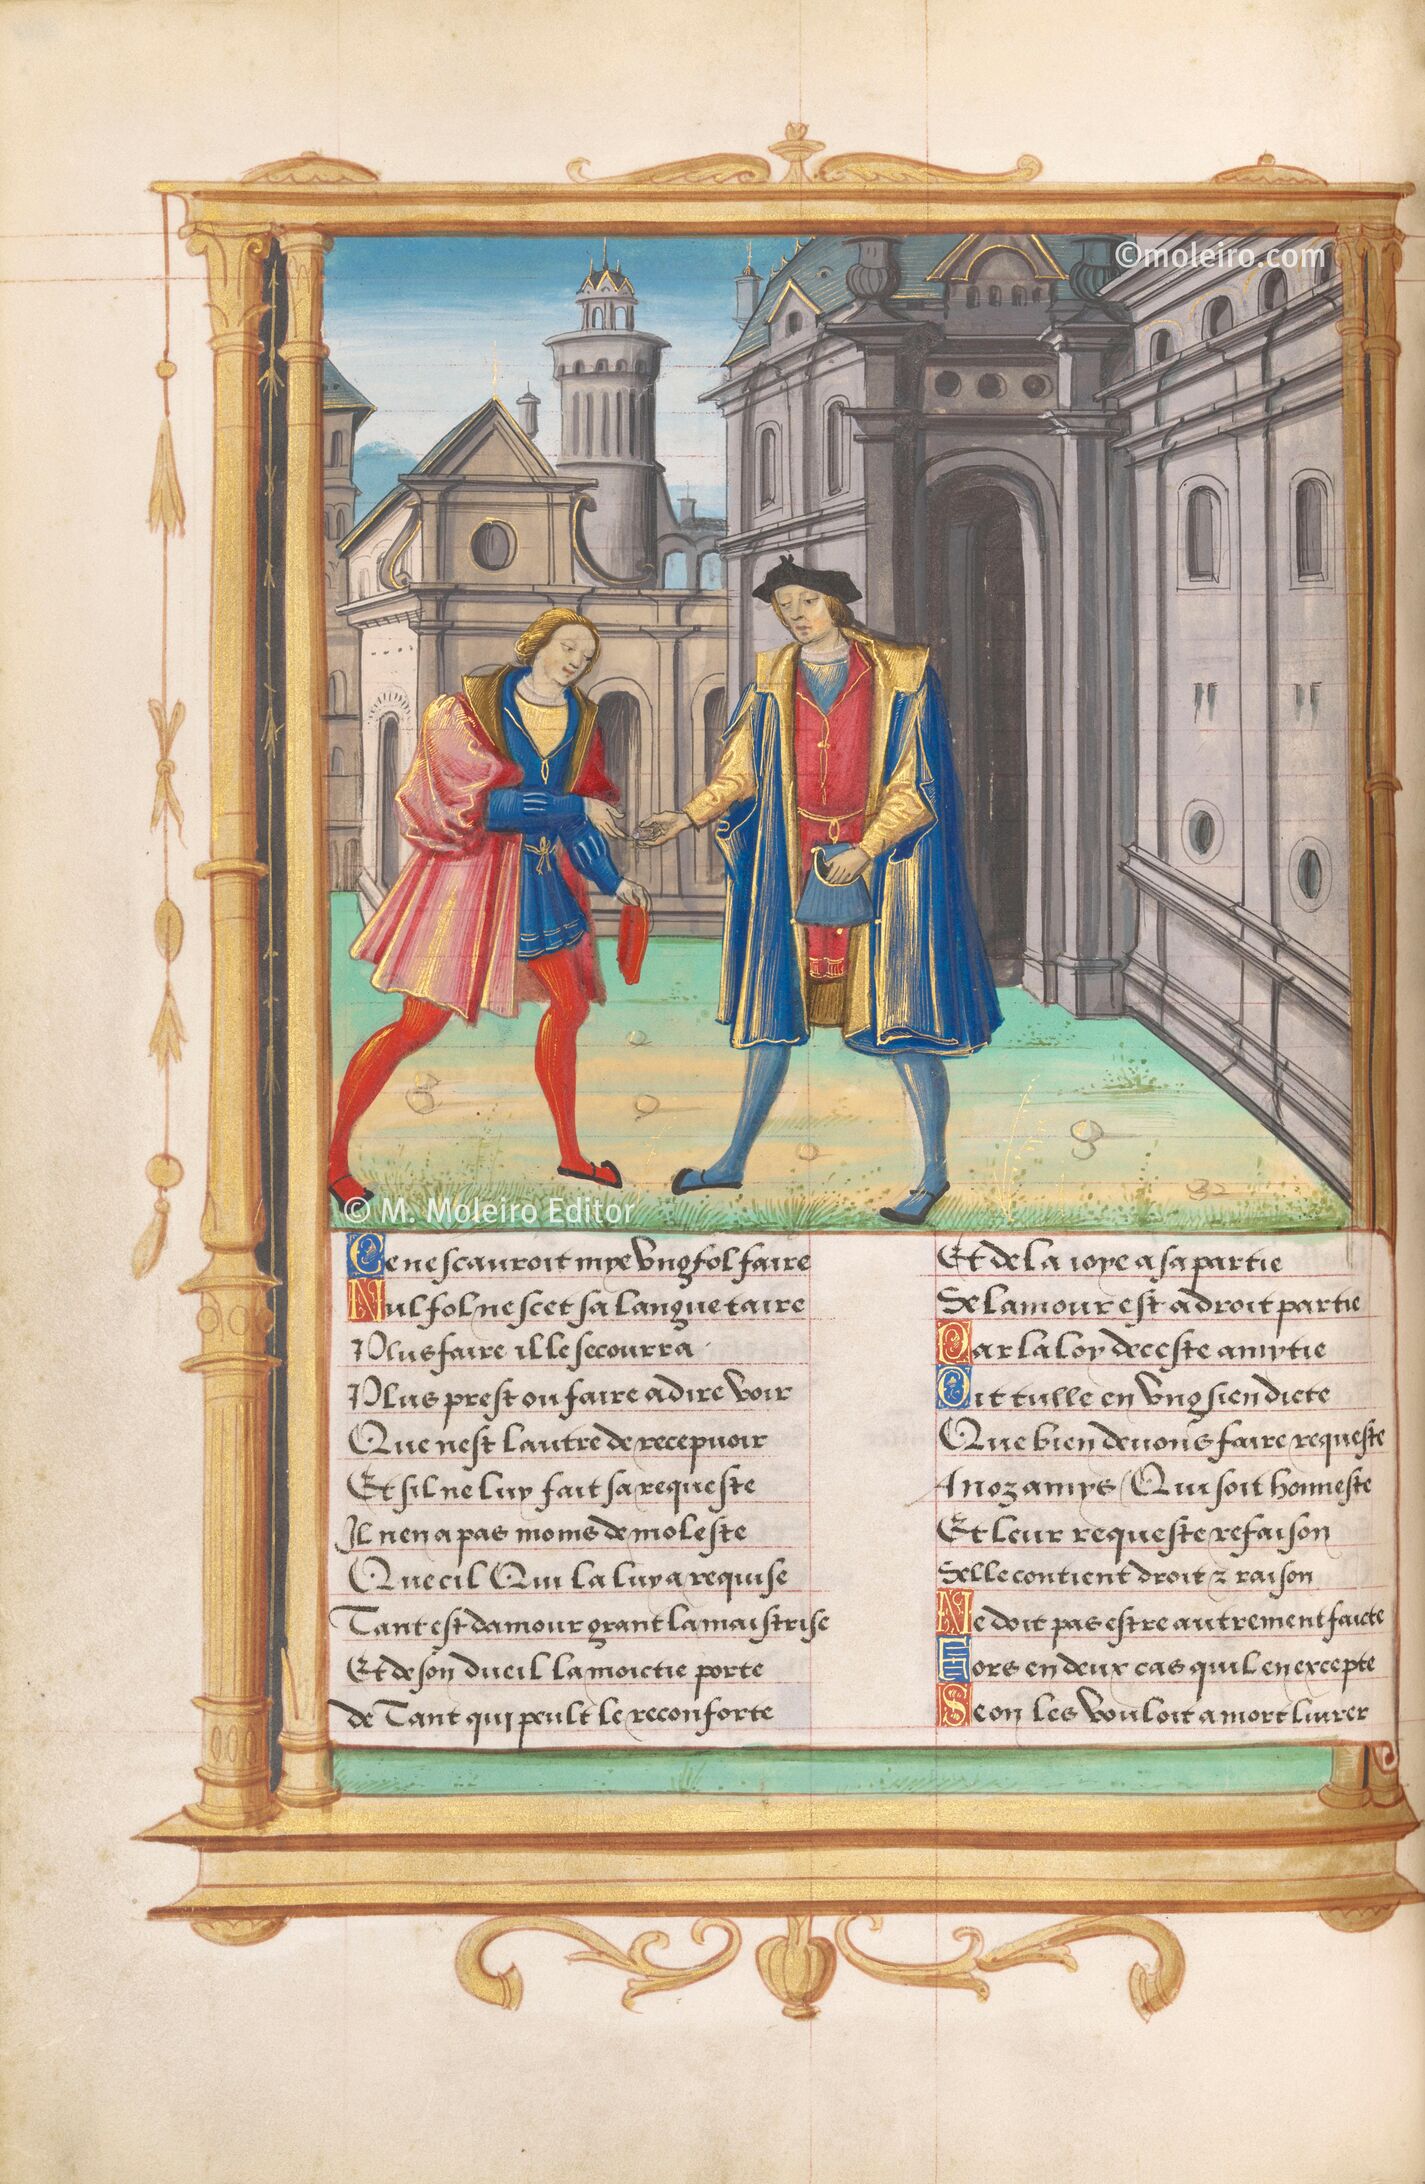 ©moleiro.com
© M. Moleiro Editor
Ce ne scauroit mye ung fol faire
Nul fol ne scet sa langue taire
Plus faire il le secourra
Plus prest ou faire a dire voir
Que nest lautre de recepuoir
Et sil ne luy fait sa requeste
Il nen a pas moins de moleste
Que cil Qui la luy a requise
Tant est damour grant la maistrise
Et de son dueil la moictie porte
de Tant qui peult le reconforte
Et de la ioye a sa partie
Se lamour est a droit partie
Par la loy de ceste amytie
Dit tulle en ung sien dicte
Que bien deuons faire requeste
A noz amys Qui soit honneste
Et leur requeste refaison
Selle contient droit & raison
Ne doit pas estre autrement faicte
Fors en deux cas quil en excepte
Se on les vouloit a mort liurer